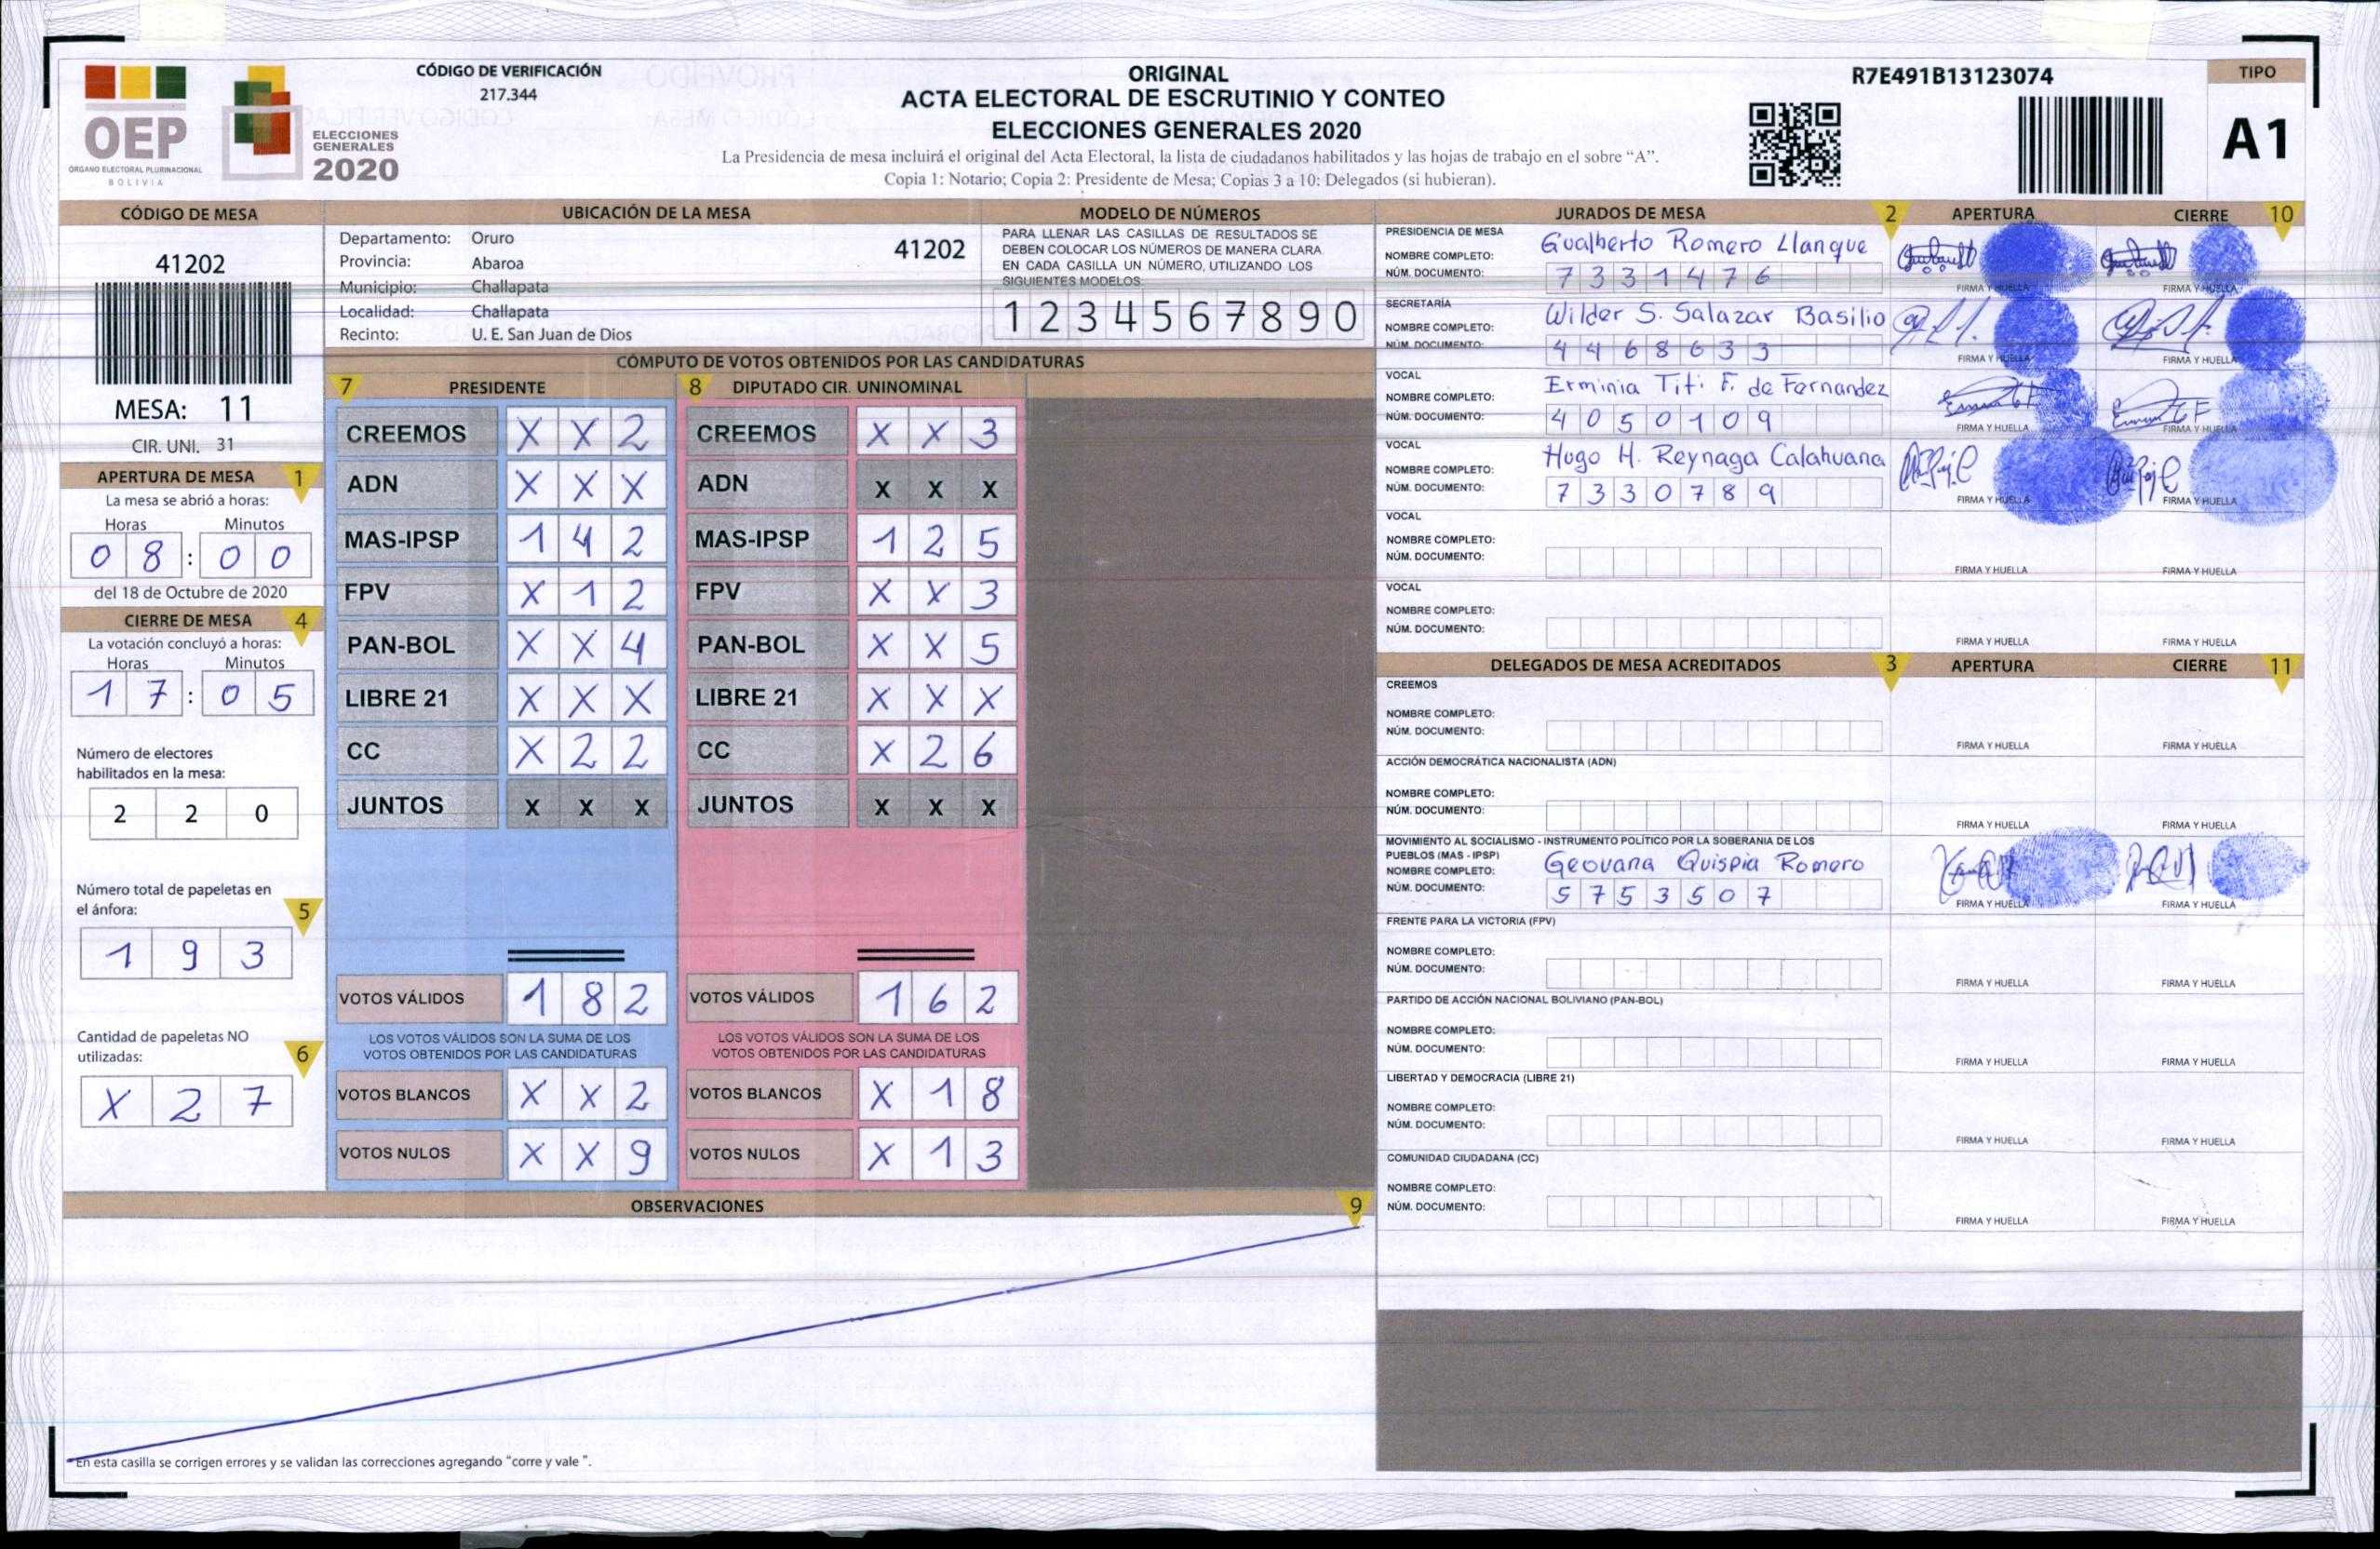 OEP
ÓRGANO ELECTORAL PLURINACIONAL
BOLIVIA
ELECCIONES
GENERALES
2020
CÓDIGO DE VERIFICACIÓN
217.344
ORIGINAL
ACTA ELECTORAL DE ESCRUTINIO Y CONTEO
ELECCIONES GENERALES 2020
La Presidencia de mesa incluirá el original del Acta Electoral, la lista de ciudadanos habilitados y las hojas de trabajo en el sobre “A”.
Copia 1: Notario; Copia 2: Presidente de Mesa; Copias 3 a 10: Delegados (si hubieran).
R7E491B13123074
TIPO
A1
CÓDIGO DE MESA
41202
MESA: 11
CIR. UNI. 31
APERTURA DE MESA 1
La mesa se abrió a horas:
Horas Minutos
0 8 : 0 0
del 18 de Octubre de 2020
CIERRE DE MESA 4
La votación concluyó a horas:
Horas Minutos
1 7 : 0 5
Número de electores
habilitados en la mesa:
2 2 0
Número total de papeletas en
el ánfora: 5
1 9 3
Cantidad de papeletas NO
utilizadas: 6
X 2 7
UBICACIÓN DE LA MESA
Departamento: Oruro 41202
Provincia: Abaroa
Municipio: Challapata
Localidad: Challapata
Recinto: U. E. San Juan de Dios
MODELO DE NÚMEROS
PARA LLENAR LAS CASILLAS DE RESULTADOS SE
DEBEN COLOCAR LOS NÚMEROS DE MANERA CLARA
EN CADA CASILLA UN NÚMERO, UTILIZANDO LOS
SIGUIENTES MODELOS:
1 2 3 4 5 6 7 8 9 0
CÓMPUTO DE VOTOS OBTENIDOS POR LAS CANDIDATURAS
7 PRESIDENTE 8 DIPUTADO CIR. UNINOMINAL
CREEMOS X X 2 CREEMOS X X 3
ADN X X X ADN X X X
MAS-IPSP 1 4 2 MAS-IPSP 1 2 5
FPV X 1 2 FPV X X 3
PAN-BOL X X 4 PAN-BOL X X 5
LIBRE 21 X X X LIBRE 21 X X X
CC X 2 2 CC X 2 6
JUNTOS X X X JUNTOS X X X
VOTOS VÁLIDOS 1 8 2 VOTOS VÁLIDOS 1 6 2
LOS VOTOS VÁLIDOS SON LA SUMA DE LOS LOS VOTOS VÁLIDOS SON LA SUMA DE LOS
VOTOS OBTENIDOS POR LAS CANDIDATURAS VOTOS OBTENIDOS POR LAS CANDIDATURAS
VOTOS BLANCOS X X 2 VOTOS BLANCOS X 1 8
VOTOS NULOS X X 9 VOTOS NULOS X 1 3
OBSERVACIONES 9
En esta casilla se corrigen errores y se validan las correcciones agregando “corre y vale ”.
JURADOS DE MESA 2 APERTURA CIERRE 10
PRESIDENCIA DE MESA
NOMBRE COMPLETO: Gualberto Romero Llanque
NÚM. DOCUMENTO: 7 3 3 1 4 7 6
FIRMA Y HUELLA FIRMA Y HUELLA
SECRETARÍA
NOMBRE COMPLETO: Wilder S. Salazar Basilio
NÚM. DOCUMENTO: 4 4 6 8 6 3 3
FIRMA Y HUELLA FIRMA Y HUELLA
VOCAL
NOMBRE COMPLETO: Erminia Titi F. de Fernandez
NÚM. DOCUMENTO: 4 0 5 0 1 0 9
FIRMA Y HUELLA FIRMA Y HUELLA
VOCAL
NOMBRE COMPLETO: Hugo H. Reynaga Calahuana
NÚM. DOCUMENTO: 7 3 3 0 7 8 9
FIRMA Y HUELLA FIRMA Y HUELLA
VOCAL
NOMBRE COMPLETO:
NÚM. DOCUMENTO:
FIRMA Y HUELLA FIRMA Y HUELLA
VOCAL
NOMBRE COMPLETO:
NÚM. DOCUMENTO:
FIRMA Y HUELLA FIRMA Y HUELLA
DELEGADOS DE MESA ACREDITADOS 3 APERTURA CIERRE 11
CREEMOS
NOMBRE COMPLETO:
NÚM. DOCUMENTO:
FIRMA Y HUELLA FIRMA Y HUELLA
ACCIÓN DEMOCRÁTICA NACIONALISTA (ADN)
NOMBRE COMPLETO:
NÚM. DOCUMENTO:
FIRMA Y HUELLA FIRMA Y HUELLA
MOVIMIENTO AL SOCIALISMO - INSTRUMENTO POLÍTICO POR LA SOBERANIA DE LOS
PUEBLOS (MAS - IPSP)
NOMBRE COMPLETO: Geovana Quispia Romero
NÚM. DOCUMENTO: 5 7 5 3 5 0 7
FIRMA Y HUELLA FIRMA Y HUELLA
FRENTE PARA LA VICTORIA (FPV)
NOMBRE COMPLETO:
NÚM. DOCUMENTO:
FIRMA Y HUELLA FIRMA Y HUELLA
PARTIDO DE ACCIÓN NACIONAL BOLIVIANO (PAN-BOL)
NOMBRE COMPLETO:
NÚM. DOCUMENTO:
FIRMA Y HUELLA FIRMA Y HUELLA
LIBERTAD Y DEMOCRACIA (LIBRE 21)
NOMBRE COMPLETO:
NÚM. DOCUMENTO:
FIRMA Y HUELLA FIRMA Y HUELLA
COMUNIDAD CIUDADANA (CC)
NOMBRE COMPLETO:
NÚM. DOCUMENTO:
FIRMA Y HUELLA FIRMA Y HUELLA